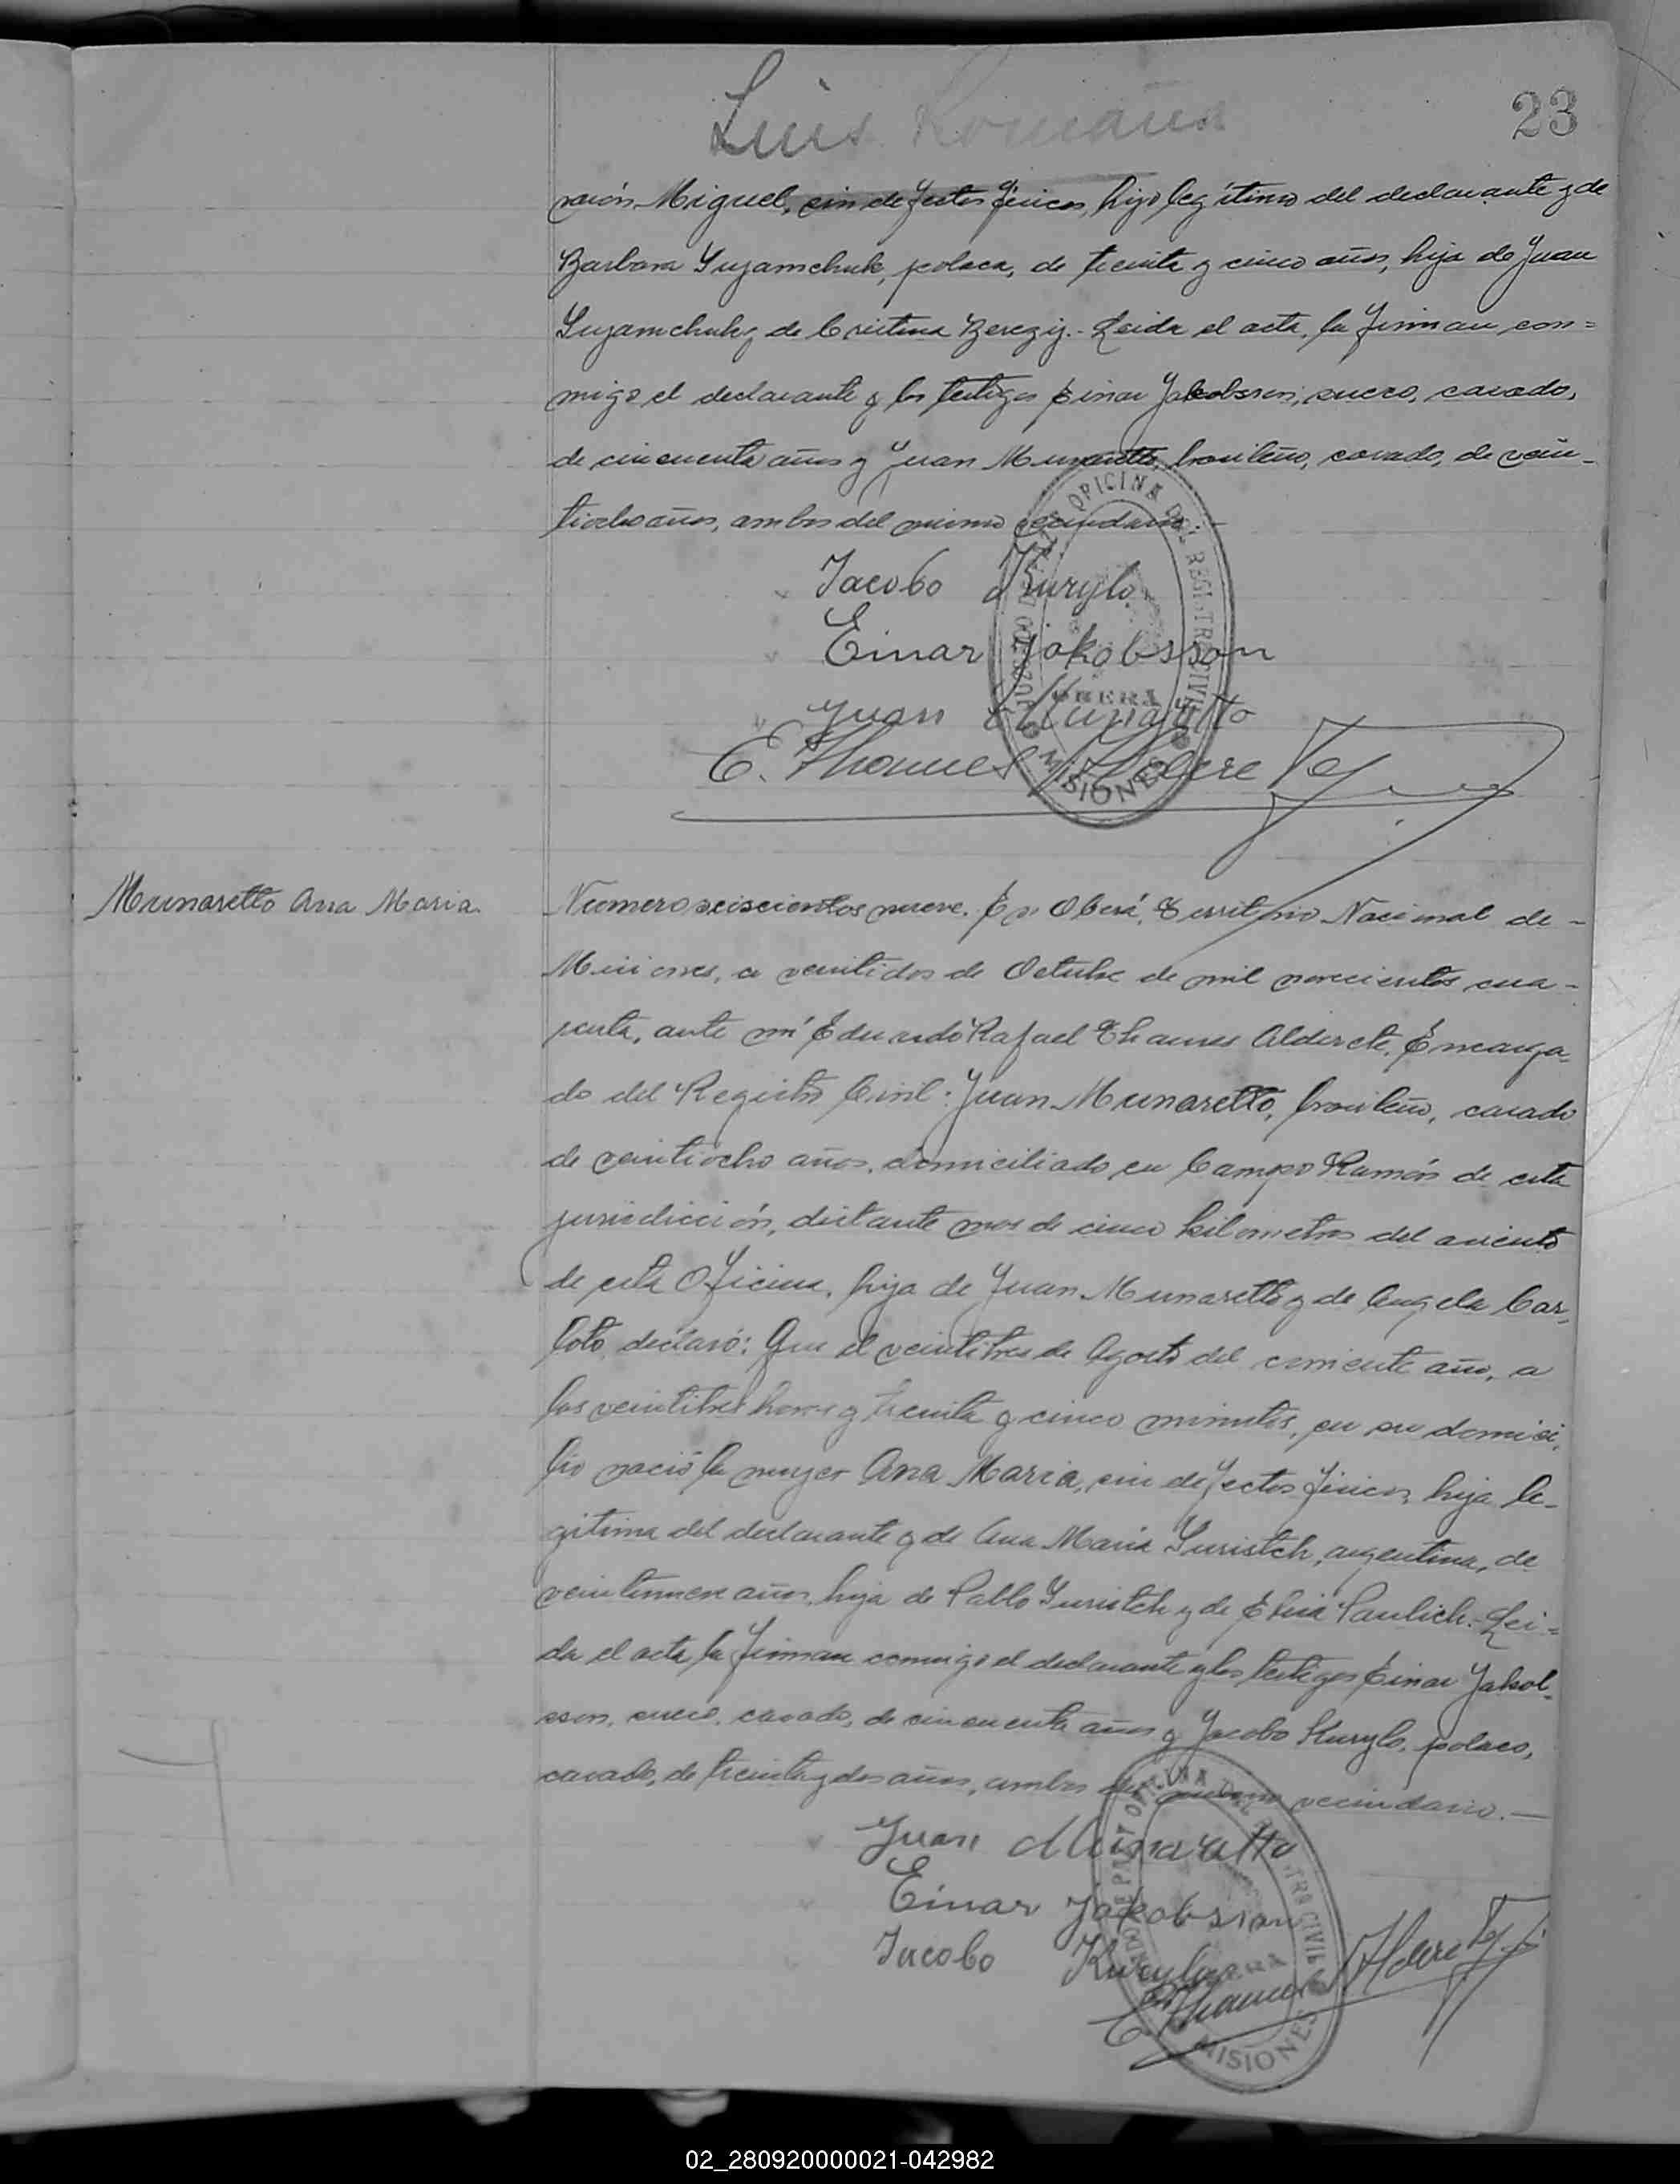 Luis Romaña
23
varón Miguel, sin defectos físicos, hijo legítimo del declarante y de
Barbara Suzamchuk, polaca, de treinta y cinco años, hija de Juan
Suzamchuk y de Cristina Berezij.- Leida el acta, la firman con=
migo el declarante y los testigos Einar Jakobsson, sueco, casado,
de cincuenta años y Juan Munaretto, brasileño, casado, de vein-
tiocho años, ambos del mismo vecindario.-
OFICINA DEL REGISTRO CIVIL
OBERA
MISIONES
Jacobo Kurylo
Einar Jakobsson
Juan Munaretto
E. Thames Alderete
Munaretto Ana Maria.
Numero seiscientos nueve. En Oberá, Territorio Nacional de-
Misiones, a veintidos de Octubre de mil novecientos cua-
renta, ante mí Eduardo Rafael Thames Alderete, Encarga-
do del Registro Civil: Juan Munaretto, brasileño, casado
de veintiocho años, domiciliado en Campo Ramón de esta
jurisdicción, distante mas de cinco kilometros del asiento
de esta Oficina, hijo de Juan Munaretto y de Angela Car-
loto, declaró: Que el veintitres de Agosto del corriente año, a
las veintitres horas y treinta y cinco minutos, en su domici-
lio nació la mujer Ana Maria, sin defectos físicos, hija le-
gitima del declarante y de Ana María Yuristch, argentina, de
veintinueve años, hija de Pablo Yuristch y de Elisa Paulich.- Lei=
da el acta la firman conmigo el declarante y los testigos Einar Jakob-
sson, sueco, casado, de cincuenta años y Jacobo Kurylo, polaco,
casado, de treinta y dos años, ambos del mismo vecindario.-
OFICINA DEL REGISTRO CIVIL
OBERA
MISIONES
Juan Munaretto
Einar Jakobsson
Jacobo Kurylo
E. Thames Alderete
02_280920000021-042982